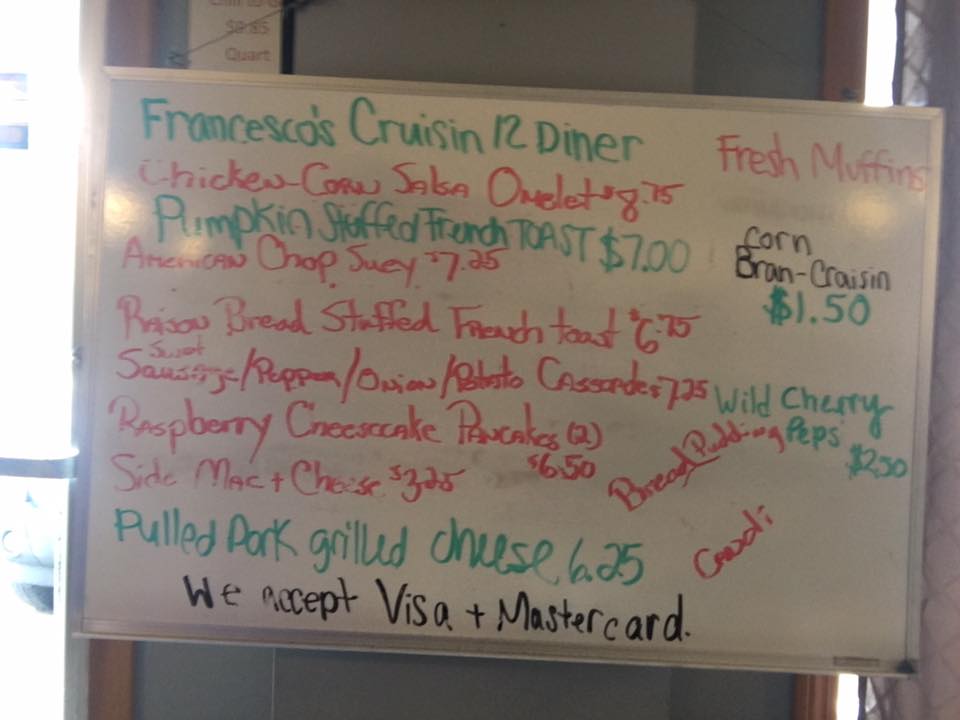 $9.85
Quart
Francesco's Cruisin 12 Diner
Chicken-Corn Salsa Omelet $8.75
Pumpkin Stuffed French TOAST $7.00
American Chop Suey $7.25
Raison Bread Stuffed French toast $6.75
Sweet
Sausage/Pepper/Onion/Potato Casserole $7.25
Raspberry Cheesecake Pancakes (2)
$6.50
Side Mac + Cheese $3.25
Pulled Pork grilled cheese 6.25
We accept Visa + Mastercard.
Fresh Muffins
Corn
Bran-Craisin
$1.50
Wild Cherry
Peps
$2.50
Bread Pudding